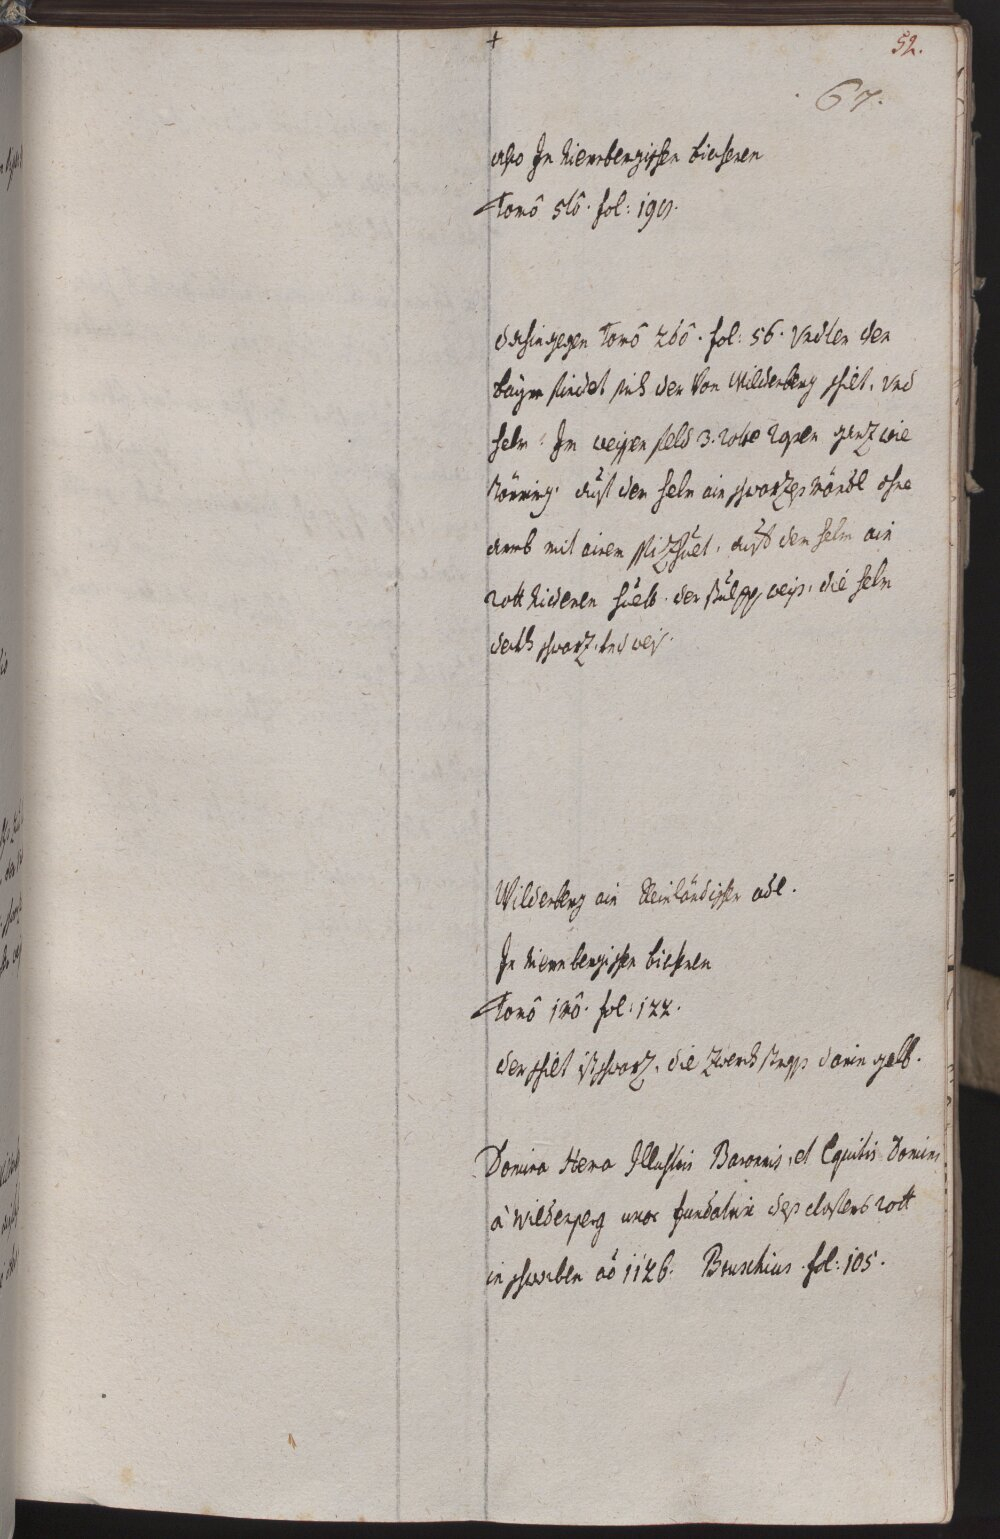 +
52.
67.
also In Niernbergischen biechern
Tomô 5tô. fol: 190.
dahingegen Tomô 2dô. fol: 56. Vndter der
bäyrn findet sich der Von Wildenberg schilt, vnd
helm: Im weissen feld 3. rothe rosen ganz wie
Törring. auf dem helm ain schwarzes Mändl ohne
armb mit ainem spizhuet, auf dem helm ain
rott niderer huet. der stulpp weiss, die helm
deckh schwarz, vnd weis.
Wildenberg ain Reinländischer adl.
In Niernbergischen biechern
Tomô 1mô. fol: 122.
der schilt ist schwarz, die Zwerch strass darin gelb.
Domina Hema Illustris Baronnis, et Equitis Domini
à Wildenperg uxor fundatrix dess closters rott
in schwaben aõ 1126. Bruschius. fol: 105.